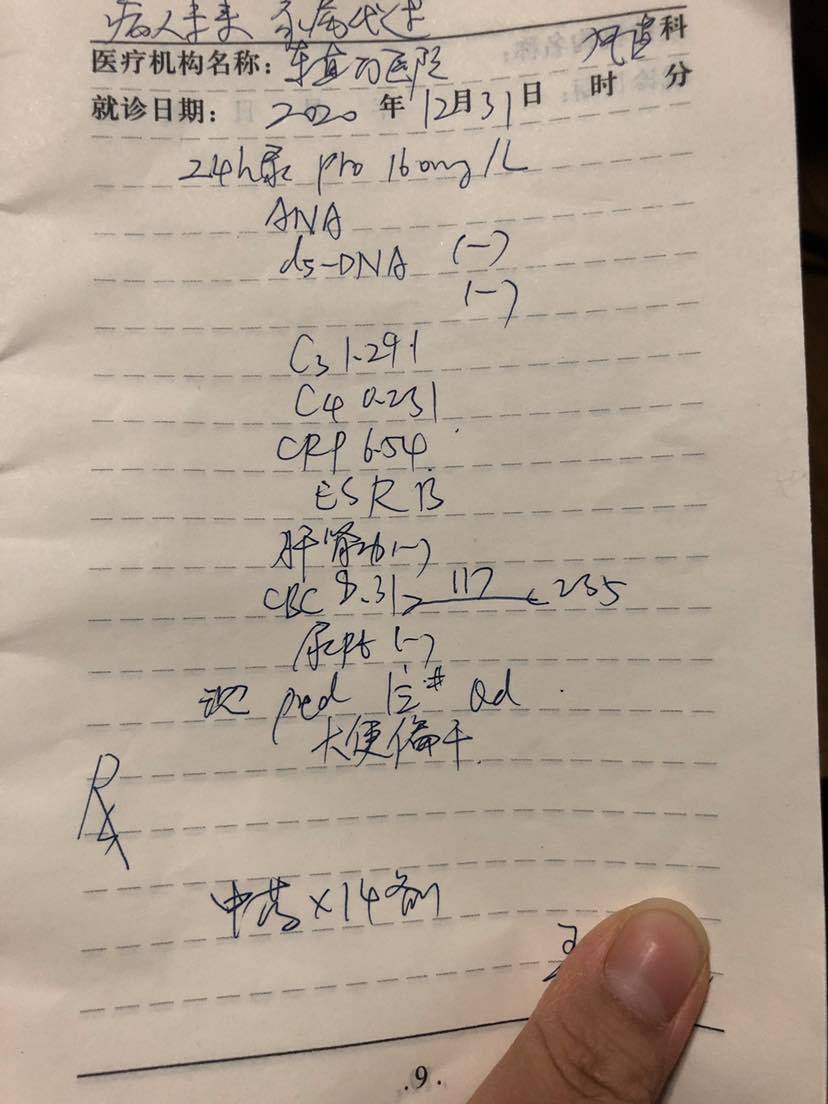 病人未来 家属代述
医疗机构名称：东直门医院 风湿科
就诊日期：2020年12月31日 时 分
24h尿 pro 160mg/L
ANA
ds-DNA (-)
(-)
C3 1.291
C4 0.231
CRP 6.54
ESR 13
肝肾功(-)
CBC 8.31 117 235
尿Rt (-)
现 pred 1½# Qd.
大便偏干.
Rx
中药×14剂
.9.